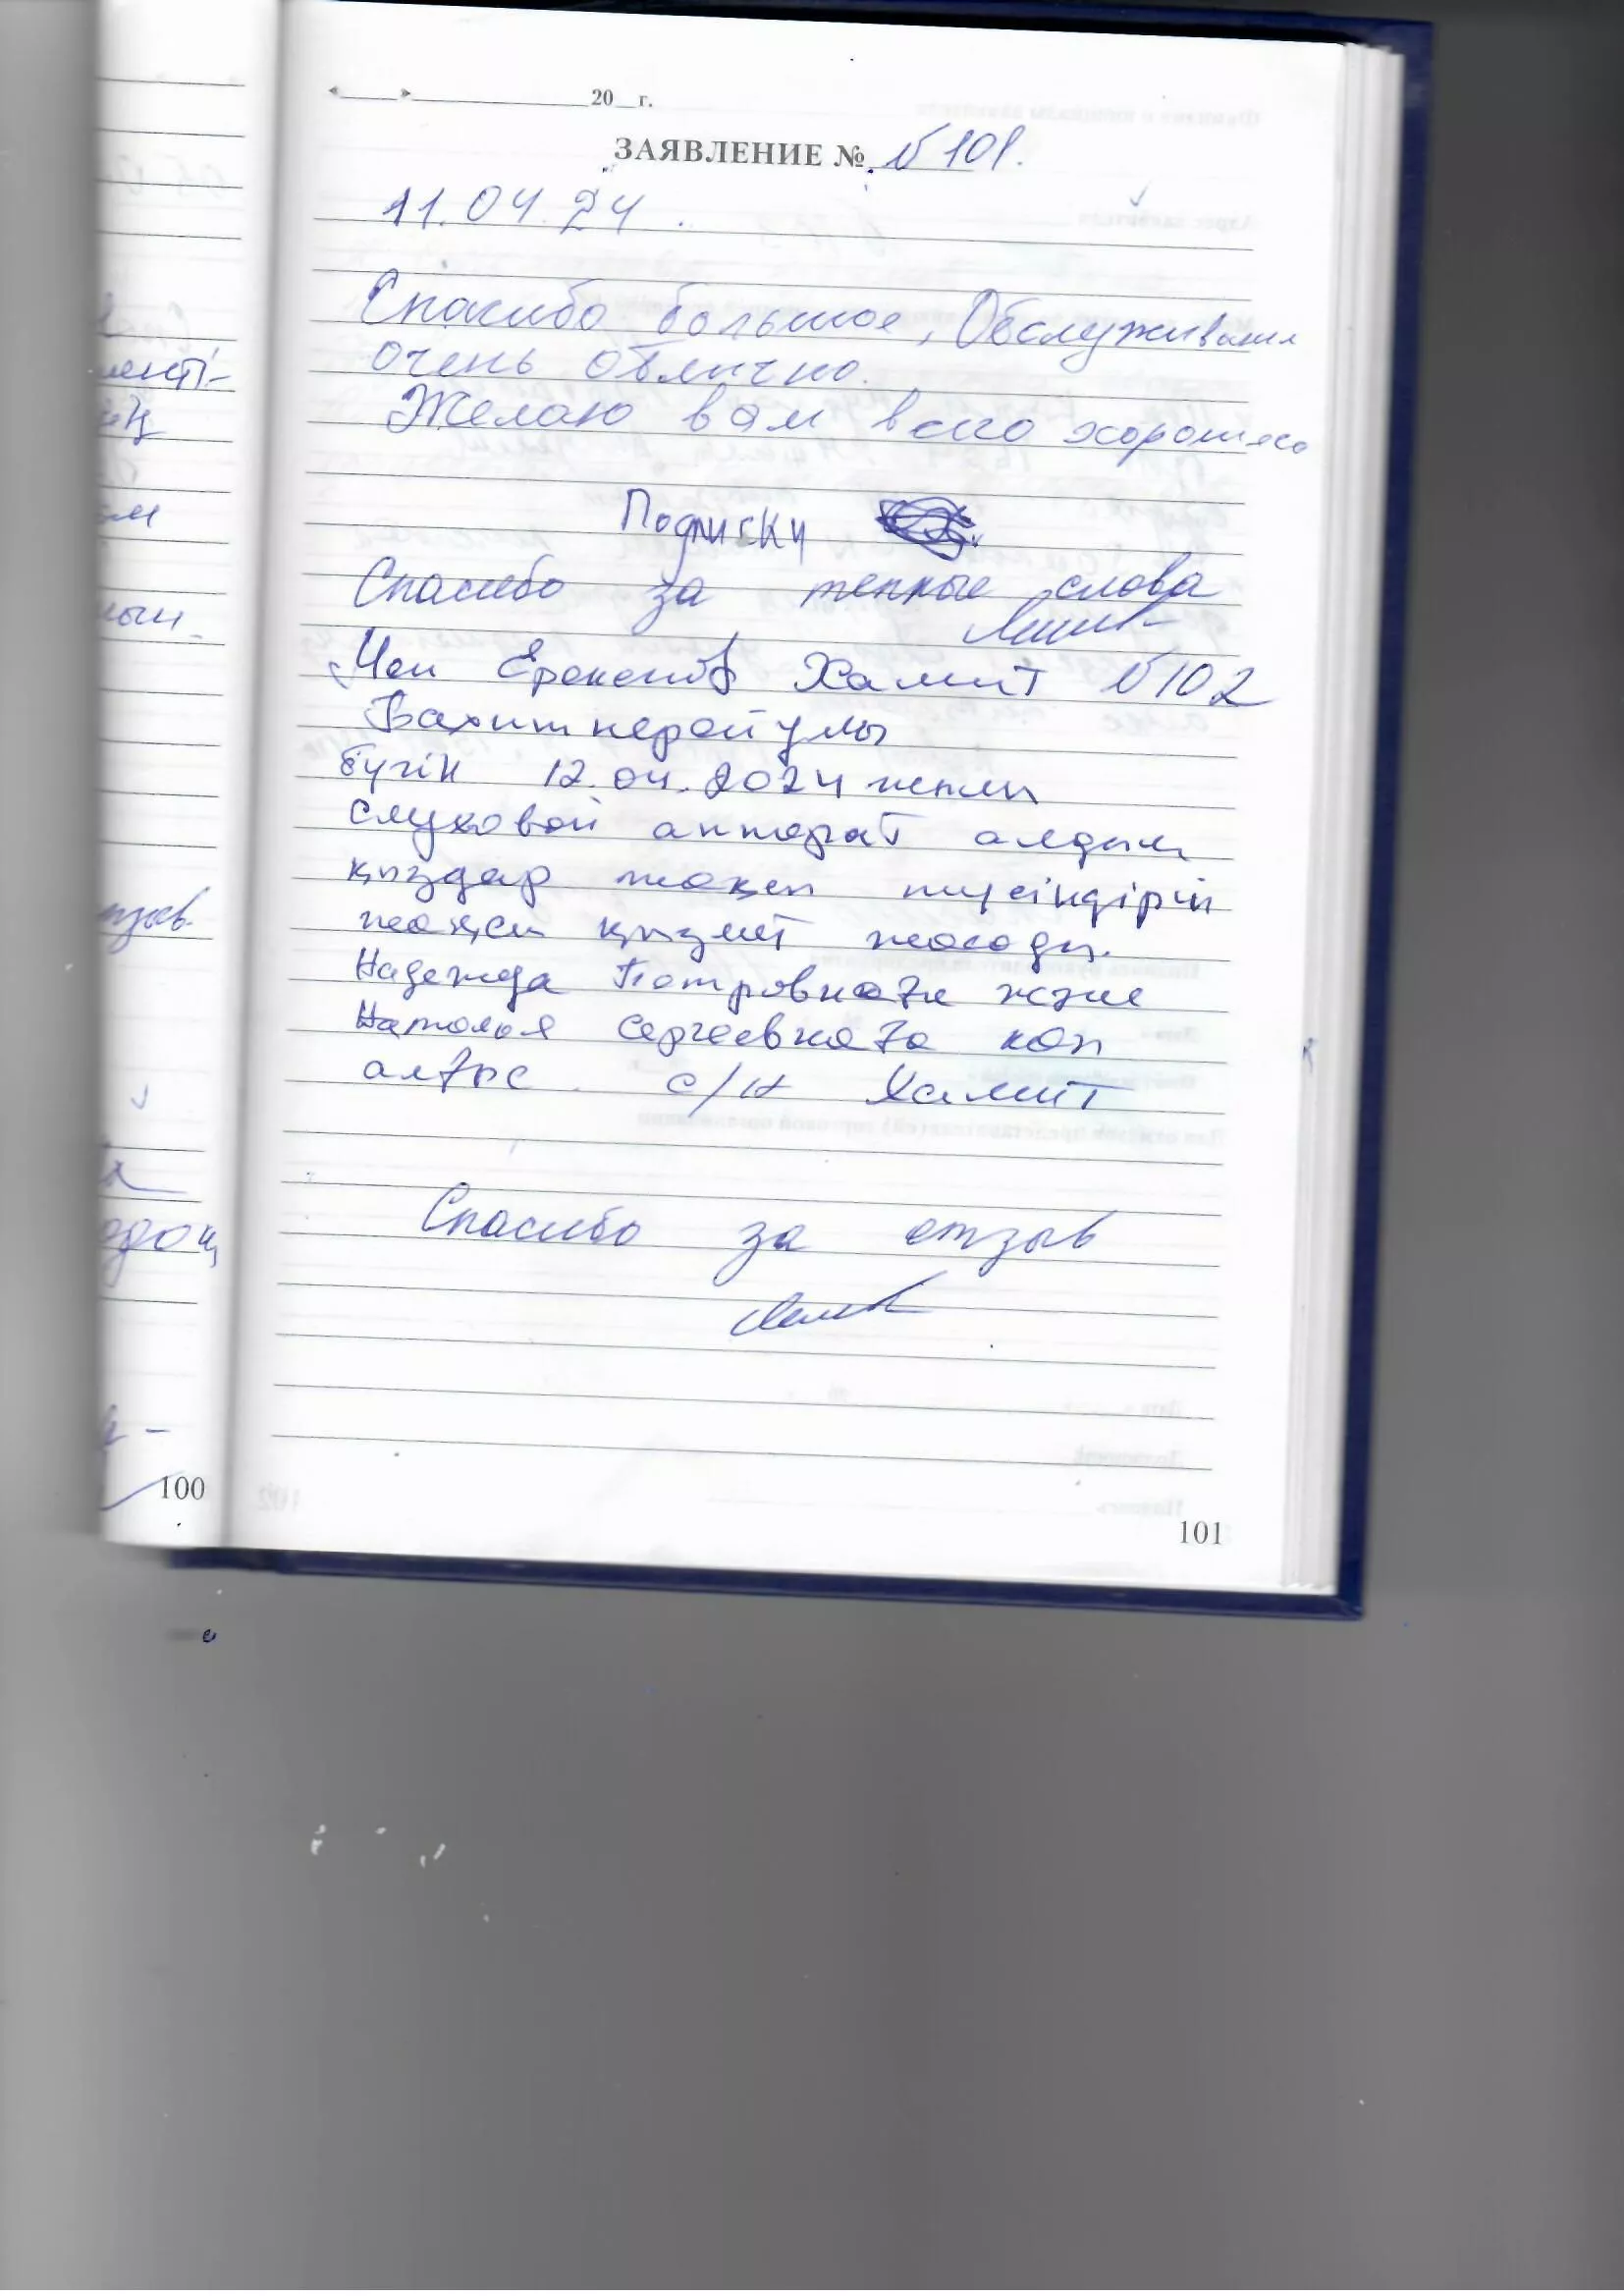 «____»______________20__г.
ЗАЯВЛЕНИЕ № N 101.
11.04.24.
Спасибо большое, Обслуживания
очень облично.
Желаю вам всего хорошего
Подписки
Спасибо за теплые слова
Мен Хамит N 102
Бахиткерейұлы
бүгін 12.04.2024 жылы
слуховой аппарат алдым
қыздар жақсы түсіндіріп
жақсы қызмет жасады.
Надежда Петровнаға және
Наталья Сергеевнаға көп
алғыс. с/н Хамит
Спасибо за отзыв
100
101